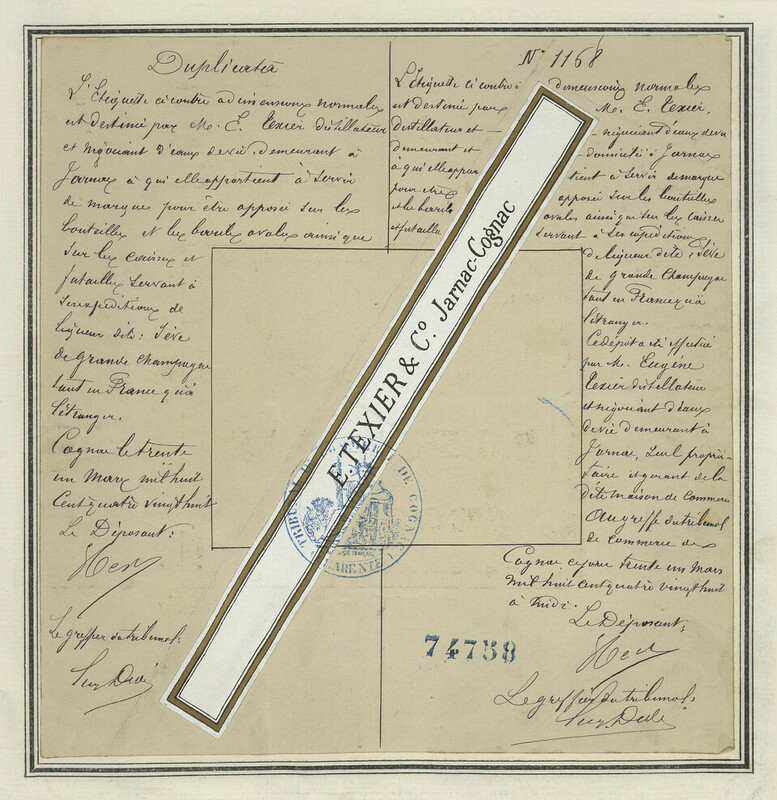 Duplicata
L'Étiquette ci contre a dimensions normales
est destiné par M. E. Texier distillateur
et négociant d'eaux de vie demeurant à
Jarnac à qui elle appartient à servir
de marque pour être apposé sur les
bouteilles et les barils ovales ainsi que
sur les caisses et
futailles servant à
ses expéditions de
liqueur dite : Sève
de grande champagne
tant en France qu'à
l'étranger.
Cognac le trente
un Mars mil huit
cent quatre vingt huit
Le Déposant :
Le greffier du tribunal
N° 1168
L'Étiquette ci contre à
est destiné par
distillateur et
demeurant et
à qui elle appar
pour être
et les barils
et futailles
dimensions normales
M. E. Texier,
négociant d'eaux de vie
domicilié à Jarnac
tient à servir de marque
apposé sur les bouteilles
ovales ainsi que sur les caisses
servant à ses expéditions
de liqueur dite : Sève
de grande Champagne
tant en France qu'à
l'étranger.
Ce dépôt a été effectué
par M. Eugène
Texier distillateur
et négociant d'eaux
de vie demeurant à
Jarnac, seul proprié-
taire et gérant de la
dite maison de commerce
au greffe du tribunal
de commerce de
Cognac ce jour trente un Mars
mil huit cent quatre vingt huit
à midi.
Le Déposant :
Le greffier du tribunal
E. TEXIER & Co. Jarnac-Cognac
TRIBUNAL DE COGNAC
CHARENTE
74758